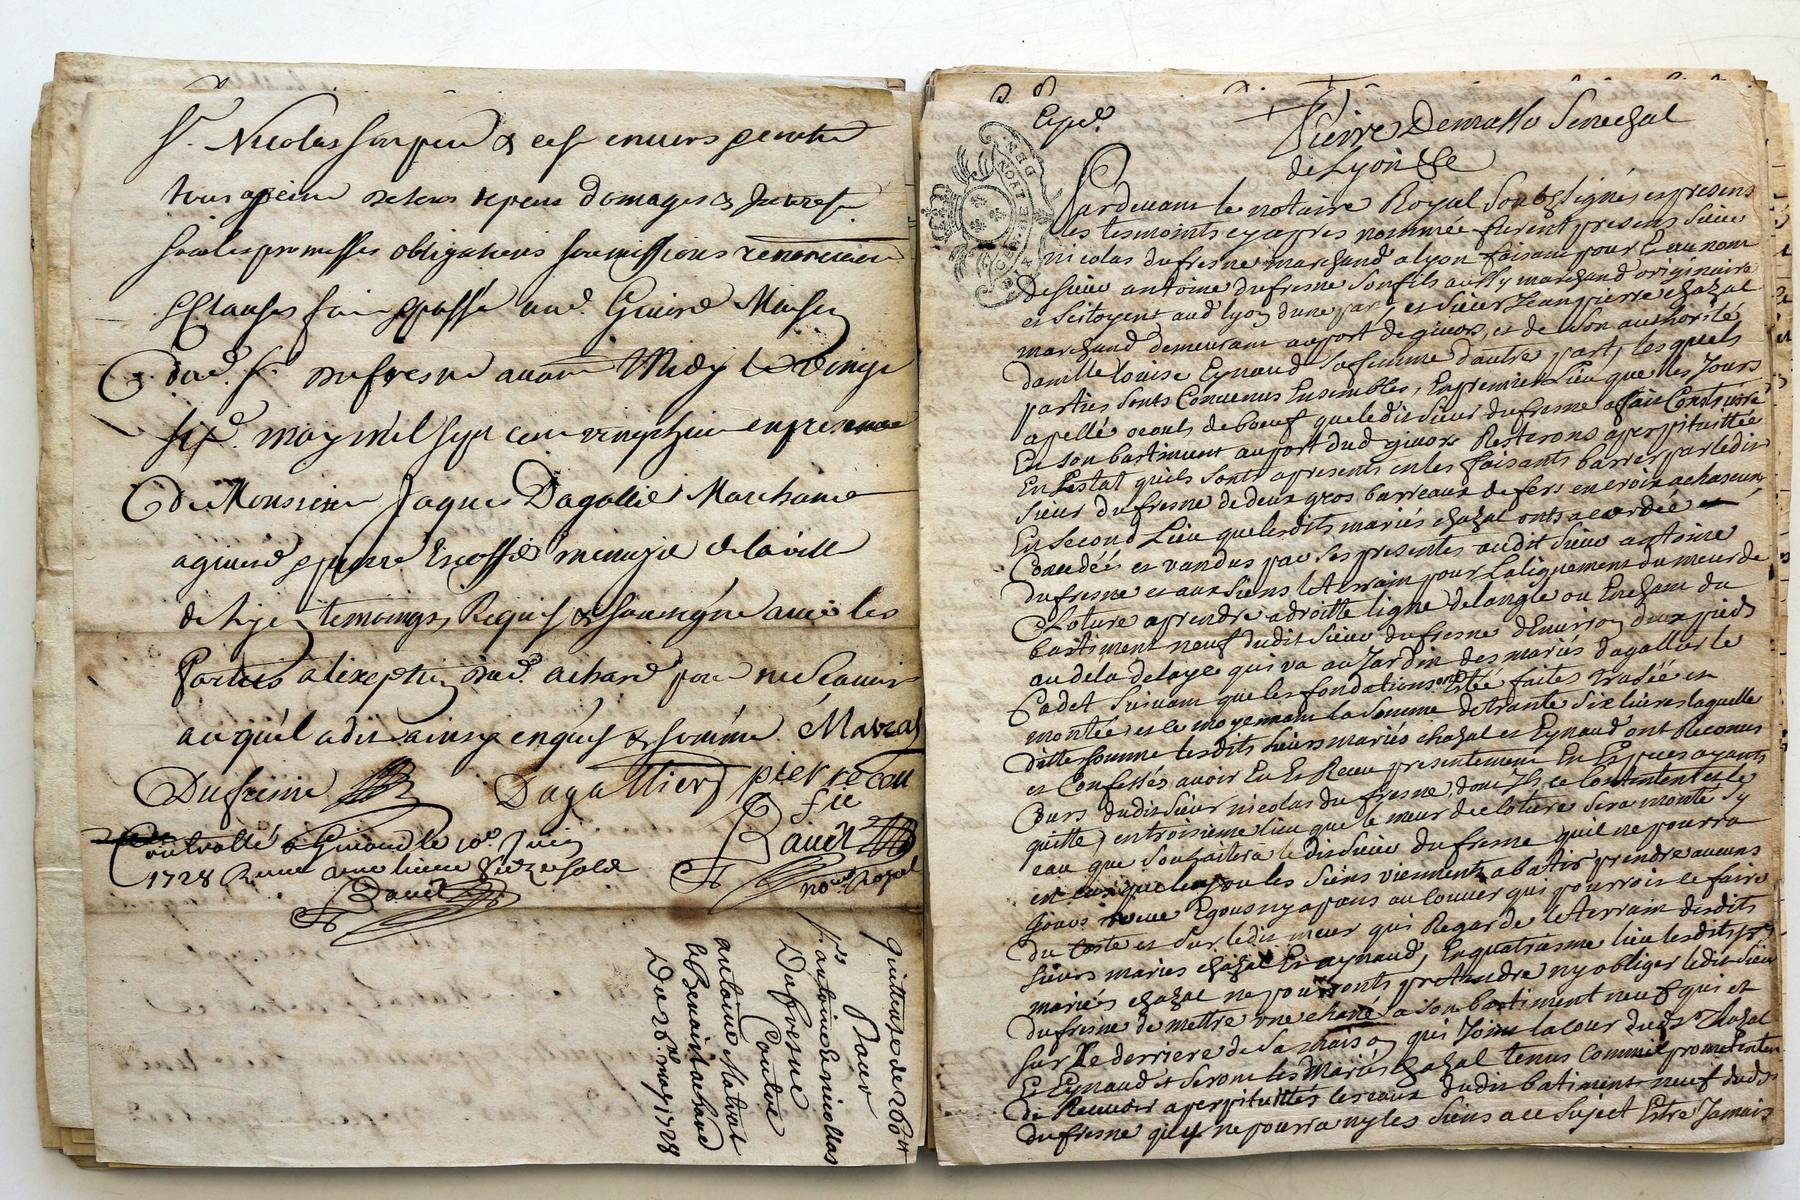 Sr. Nicolas son pere & ce envers
tous a peine de tous depens domages & Interest
soubs promesses obligations soumissions renonciations
& Clauses fait & passé aud. Givord Maison
dud. Sr. Dufresne avant Midy le vingt
six. may mil sept cent vingt huit en presence
de Monsieur Jaques Dagallier Marchand
a givord & pierre Escoffié menuzie de la ville
de Lyon temoings Requis & sousigné avec les
Parties a l'exception dud. achard pour ne scavoir
ce qu'il a dit ainsy enquis & sommé Mavrat
Dufresne Dagallier pierre escu
fié
Controllé a Givord le 10e. Juin
1728 Reçeu une livre
David
David
nore. Royal
quittance de 260 tt
Pour
srs antoine & nicollas
Dufresne
Contre
antoine Matrat
& Benoit achard
Du 26me may 1728
Expé.
Pierre Demasso Senechal
de Lyon &c
Pardevant le notaire Royal soubssignés es presens
les tesmoints cy apres nommée furent presens Sieur
nicolas dufresne marchand a lyon faisant pour & au nom
de Sieur antoine dufresne son fils aussy marchand originaire
et Sitoyent aud. lyon d'une part, et Sieur Jean pierre chazal
marchand demeurant au port de givors, et de son authorité
damlle louise Eynaud sa femme d'autre part, les quels
parties sonts Convenus Ensembles, En premier Lieu que les Jours
apellé oeouls de boeuf que ledit Sieur dufresne a fait Construire
En son bastiment au port dud. givors Resterons a perpituittée
En L'estat qu'ils sont a presents en les faisants barrer par ledit
Sieur dufresne de deux gros barreaux de fers en croix a chascun
En Second Lieu que lesdits mariés chazal onts acordée
Concedée et vandus par Ses presentes audit Sieur antoine
dufresne et aux siens le terrain pour L'aligniement du meur de
Cloture a prendre a droitte ligne de langle du
bastiment neuf dudit Sieur dufresne d'Environ deux pieds
au dela de la yee qui va au Jardin des mariés dagallier le
Cadet Suivant que les fondations ont Estée faites trasée et
montée et ce moyennant la Somme de trante Six livres laquelle
ditte Somme lesdits Sieurs mariés chazal et Eynaud ont Reconus
et Confessés avoir Eu et Receu presentement En Especes ayants
Cours dudit Sieur nicolas du fresne, dont Ils ce Contentent et le
quitte, en troisieme lieu que le meur de cloture sera monté Sy
eau que Souhaitera ledit Sieur dufresne qu'il ne pourra
ou les Siens viennent a batir prendre aucuns
Jours veue Egous ny apans au couvert qui pourrois le faire
du Coste et Sur ledit meur qui Regarde le terrain desdits
Sieurs mariés chazal Et aynaud, En quatriesme lieu lesdits
mariés chazal ne pourronts pretandre ny obliger ledit Sieur
dufresne de mettre une chané a son bastiment neuf qui est
Sur le derriere de Sa maison qui Joint la Cour dudt Sr. Chazal
Et Eynaud et Seront les Mariés chazal tenus Comme il promettent
de Recevoir a perpituittés les eaux dudit batiment neuf dudt Sr
dufresne quy ne pourra ny les Siens a ce Suject Estre Jamais